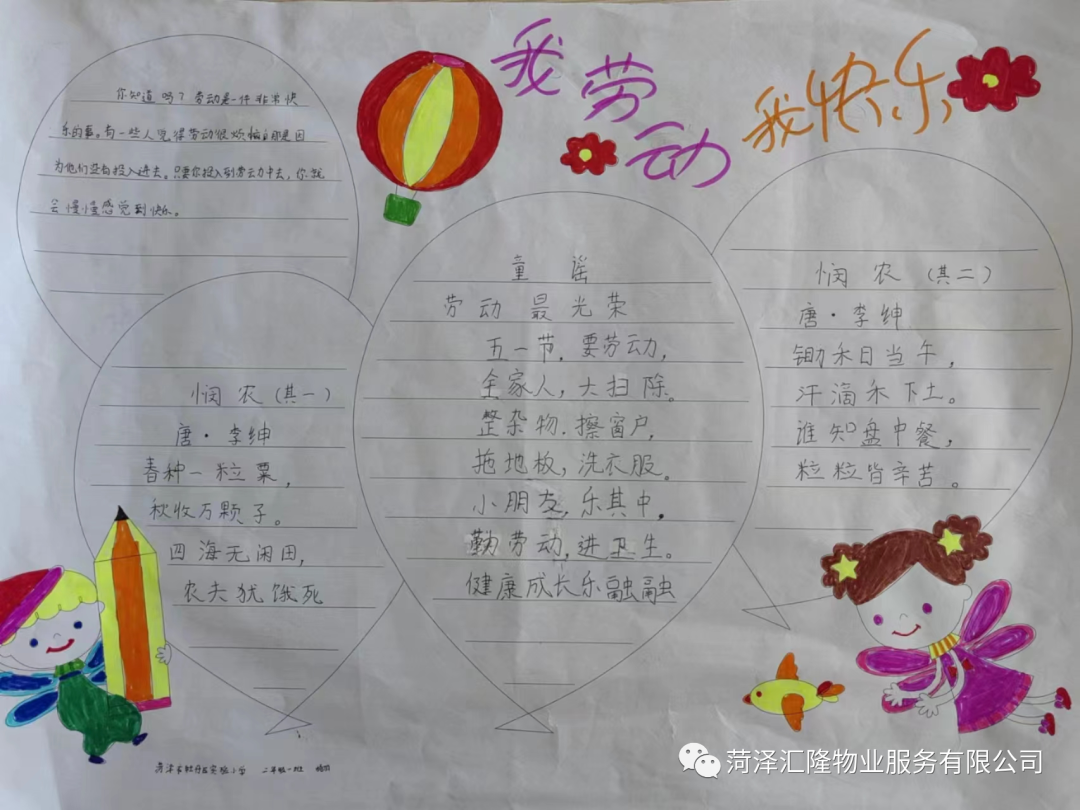 我劳动
我快乐
你知道吗？劳动是一件非常快
乐的事。有一些人觉得劳动很烦恼，那是因
为他们没有投入进去。只要你投入到劳动中去，你就
会慢慢感觉到快乐。
悯农（其一）
唐·李绅
春种一粒粟，
秋收万颗子。
四海无闲田，
农夫犹饿死
童谣
劳动最光荣
五一节，要劳动，
全家人，大扫除。
整杂物，擦窗户，
拖地板，洗衣服。
小朋友，乐其中，
勤劳动，进卫生。
健康成长乐融融
悯农（其二）
唐·李绅
锄禾日当午，
汗滴禾下土。
谁知盘中餐，
粒粒皆辛苦。
二年级一班
菏泽汇隆物业服务有限公司